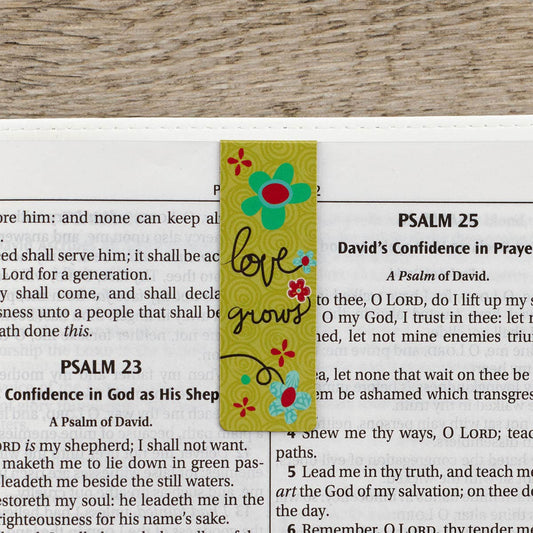 P 2
ore him: and none can keep al
eed shall serve him; it shall be ac
Lord for a generation.
y shall come, and shall decla
sness unto a people that shall be
ath done this.
PSALM 23
Confidence in God as His Shep
A Psalm of David.
ORD is my shepherd; I shall not want.
maketh me to lie down in green pas-
leadeth me beside the still waters.
estoreth my soul: he leadeth me in the
righteousness for his name's sake.
love
grows
PSALM 25
David's Confidence in Praye
A Psalm of David.
to thee, O LORD, do I lift up my s
O my God, I trust in thee: let
ned, let not mine enemies triu
ea, let none that wait on thee be
em be ashamed which transgres
4 Shew me thy ways, O LORD; teac
paths.
5 Lead me in thy truth, and teach me
art the God of my salvation; on thee d
the day.
6 Remember, O LORD, thy tender me